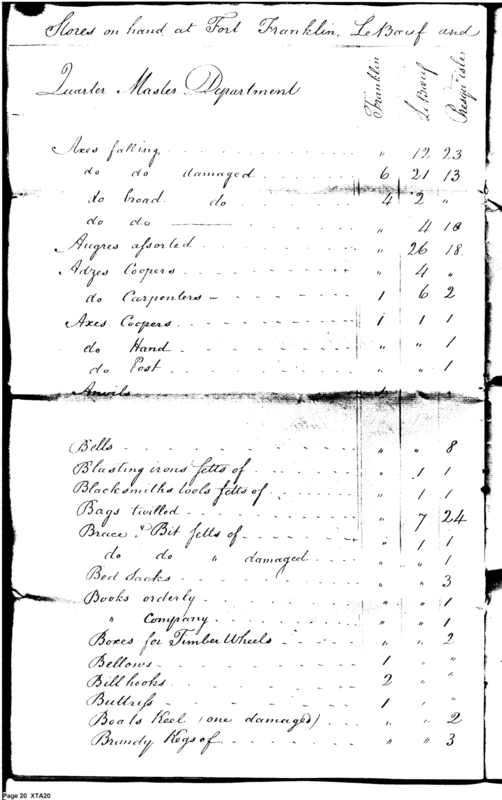 Stores on hand at Fort Franklin, LeBœuf and
Quarter Master Department
Franklin
LeBœuf
Presqu'isle
Axes falling " 12 23
do do damaged 6 21 13
do broad do 4 2 "
do do " 4 10
Augres assorted " 26 18
Adzes Coopers " 4 "
do Carpenters 1 6 2
Axes Coopers 1 1 1
do Hand " " 1
do Post " " 1
Anvils
Bells " " 8
Blasting irons setts of " 1 1
Blacksmiths tools setts of " 1 1
Bags twilled " 7 24
Brace & Bit setts of " 1 1
do do " damaged " " 1
Bed Sacks " " 3
Books orderly " " 1
" Company " " 1
Boxes for Timber Wheels " " 2
Bellows 1 " "
Bill hooks 2 " "
Buttress 1 " "
Boats Keel (one damaged) " " 2
Brandy Kegs of " " 3
Page 20 XTA20